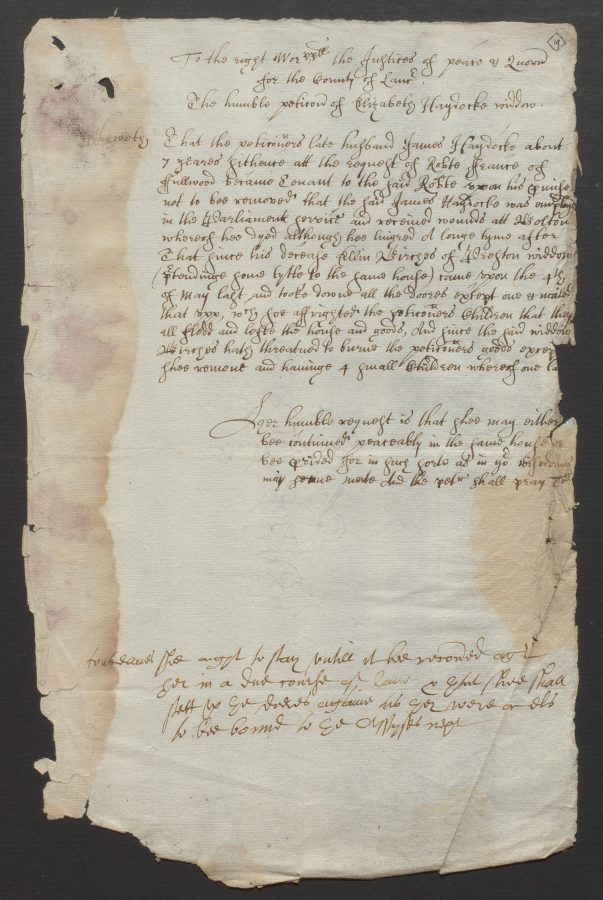 19
To the right Worpps the Justices of peace & Quorū
for the County of Lancr.
The humble peticon of Elizabeth Haydocke widdow.
Sheweth
That the peticoners late husband James Haydocke about
7 yeares sithence att the request of Robte France of
Fullwood became Tenant to the said Robte vpon his
not to bee removed that the said James Haydocke was employ
in the Parliament service and received wounds att Bolton
whereof hee dyed although hee lingred a longe tyme after
That since his decease Ellin Birches of Broghton widdow
(ptendinge some tytle to the same house) came vpon the 4th
of May last and tooke downe all the doores except one &
that soe affrighted the peticoners Children that they
all fledd and lefte the house and goods, And since the said widdow
Birches hath threatned to burne the peticoners goods excep
shee remove and havinge 4 small Children whereof one
Her humble request is that shee may either
bee continued peaceably in the same house or
bee pvided for in such sorte as in yor wisdomes
may seeme meete And the petr shall pray
shee ought to stay vntill it bee recovered agt
her in a due course of lawe & that shee shall
sett vp the dores againe as they were or els
to bee bound to the Assyses next